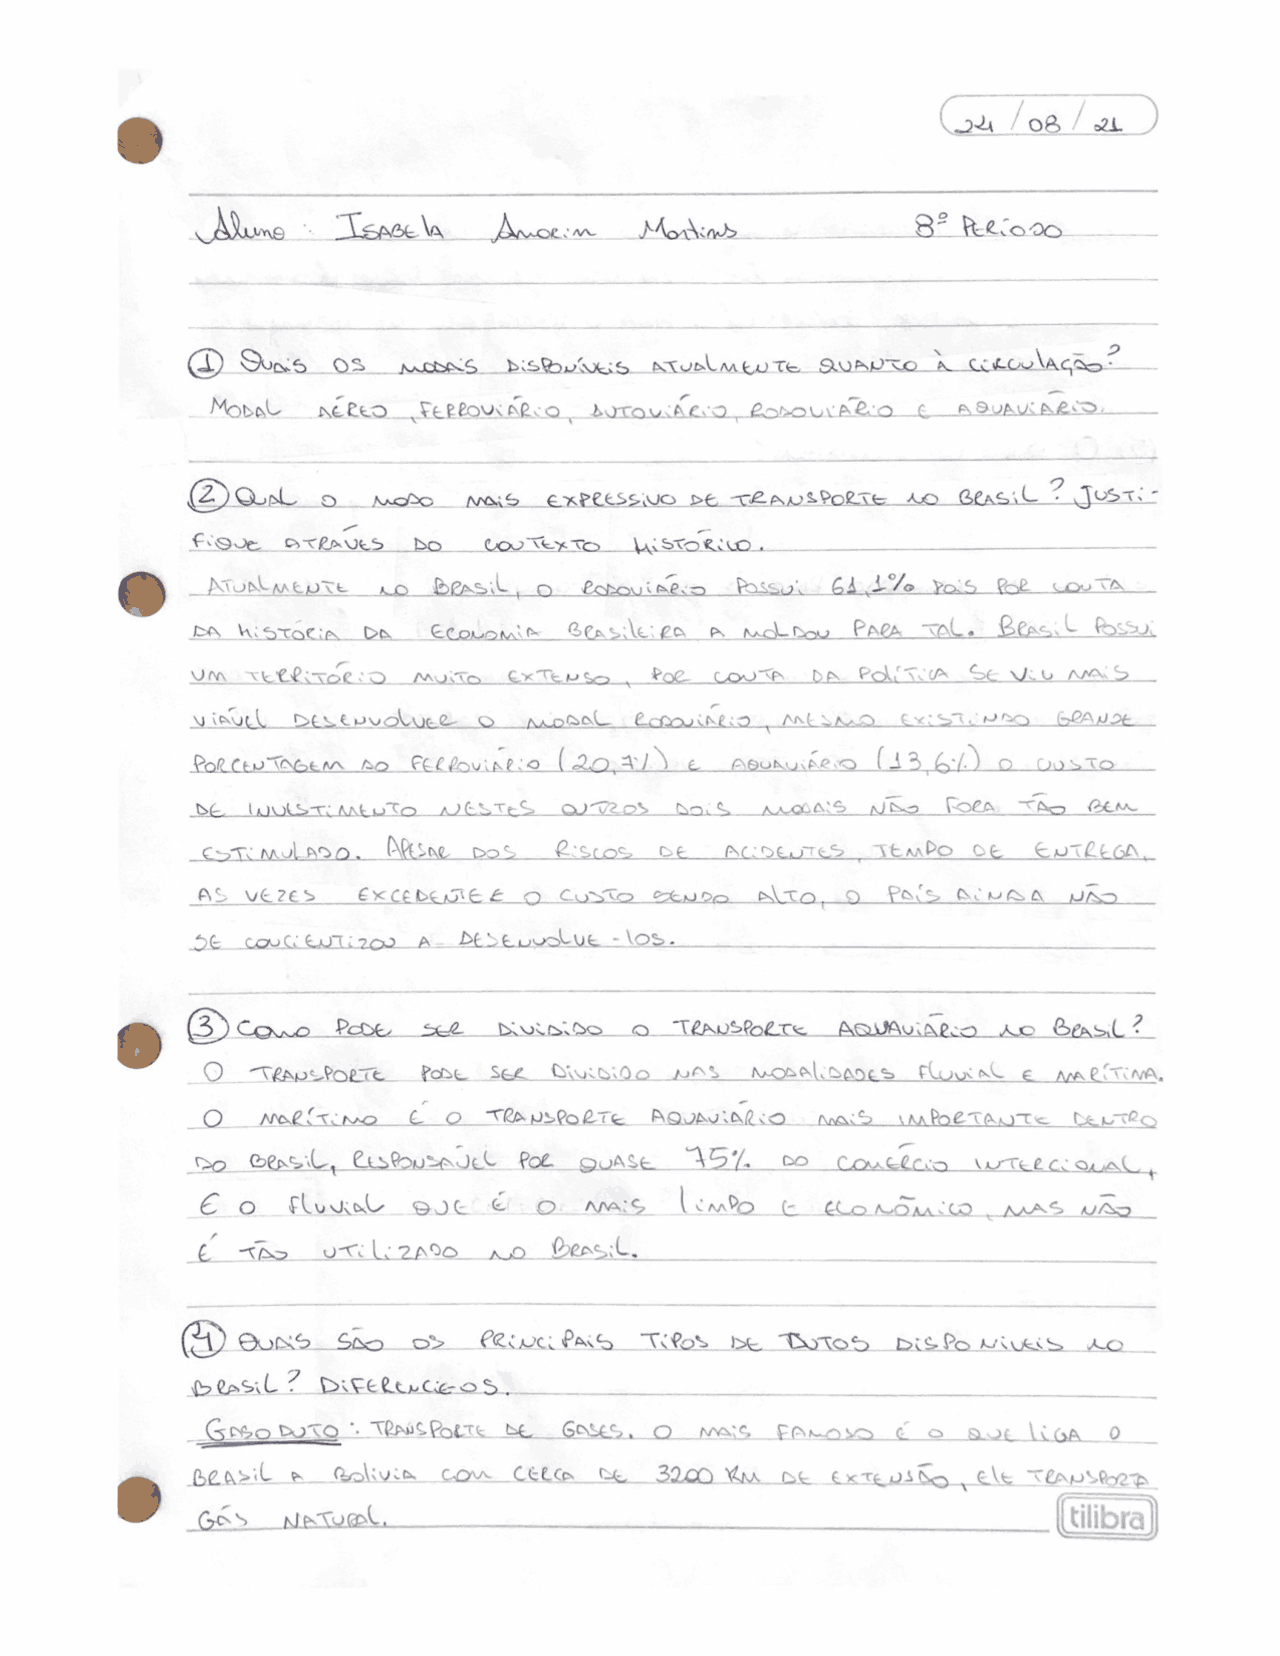 24/08/21
Aluno: Isabela Amorim Martins 8º Período
① Quais os modais disponíveis atualmente quanto à circulação?
Modal aéreo, ferroviário, dutoviário, rodoviário e aquaviário.
② Qual o modo mais expressivo de transporte no Brasil? Justi-
fique através do contexto histórico.
Atualmente no Brasil, o rodoviário possui 61,1% pois por conta
da história da economia brasileira a moldou para tal. Brasil possui
um território muito extenso, por conta da política se viu mais
viável desenvolver o modal rodoviário, mesmo existindo grande
porcentagem ao ferroviário (20,7%) e aquaviário (13,6%) o custo
de investimento nestes outros dois modais não fora tão bem
estimulado. Apesar dos riscos de acidentes, tempo de entrega,
as vezes excedente e o custo sendo alto, o país ainda não
se concientizou a desenvolve-los.
③ Como pode ser dividido o transporte aquaviário no Brasil?
O transporte pode ser dividido nas modalidades fluvial e marítima.
O marítimo é o transporte aquaviário mais importante dentro
do Brasil, responsável por quase 75% do comércio intercional,
e o fluvial que é o mais limpo e econômico, mas não
é tão utilizado no Brasil.
④ Quais são os principais tipos de dutos disponíveis no
Brasil? Diferencie-os.
Gasoduto: transporte de gases. O mais famoso é o que liga o
Brasil a Bolivia com cerca de 3200 km de extensão, ele transporta
gás natural.
tilibra